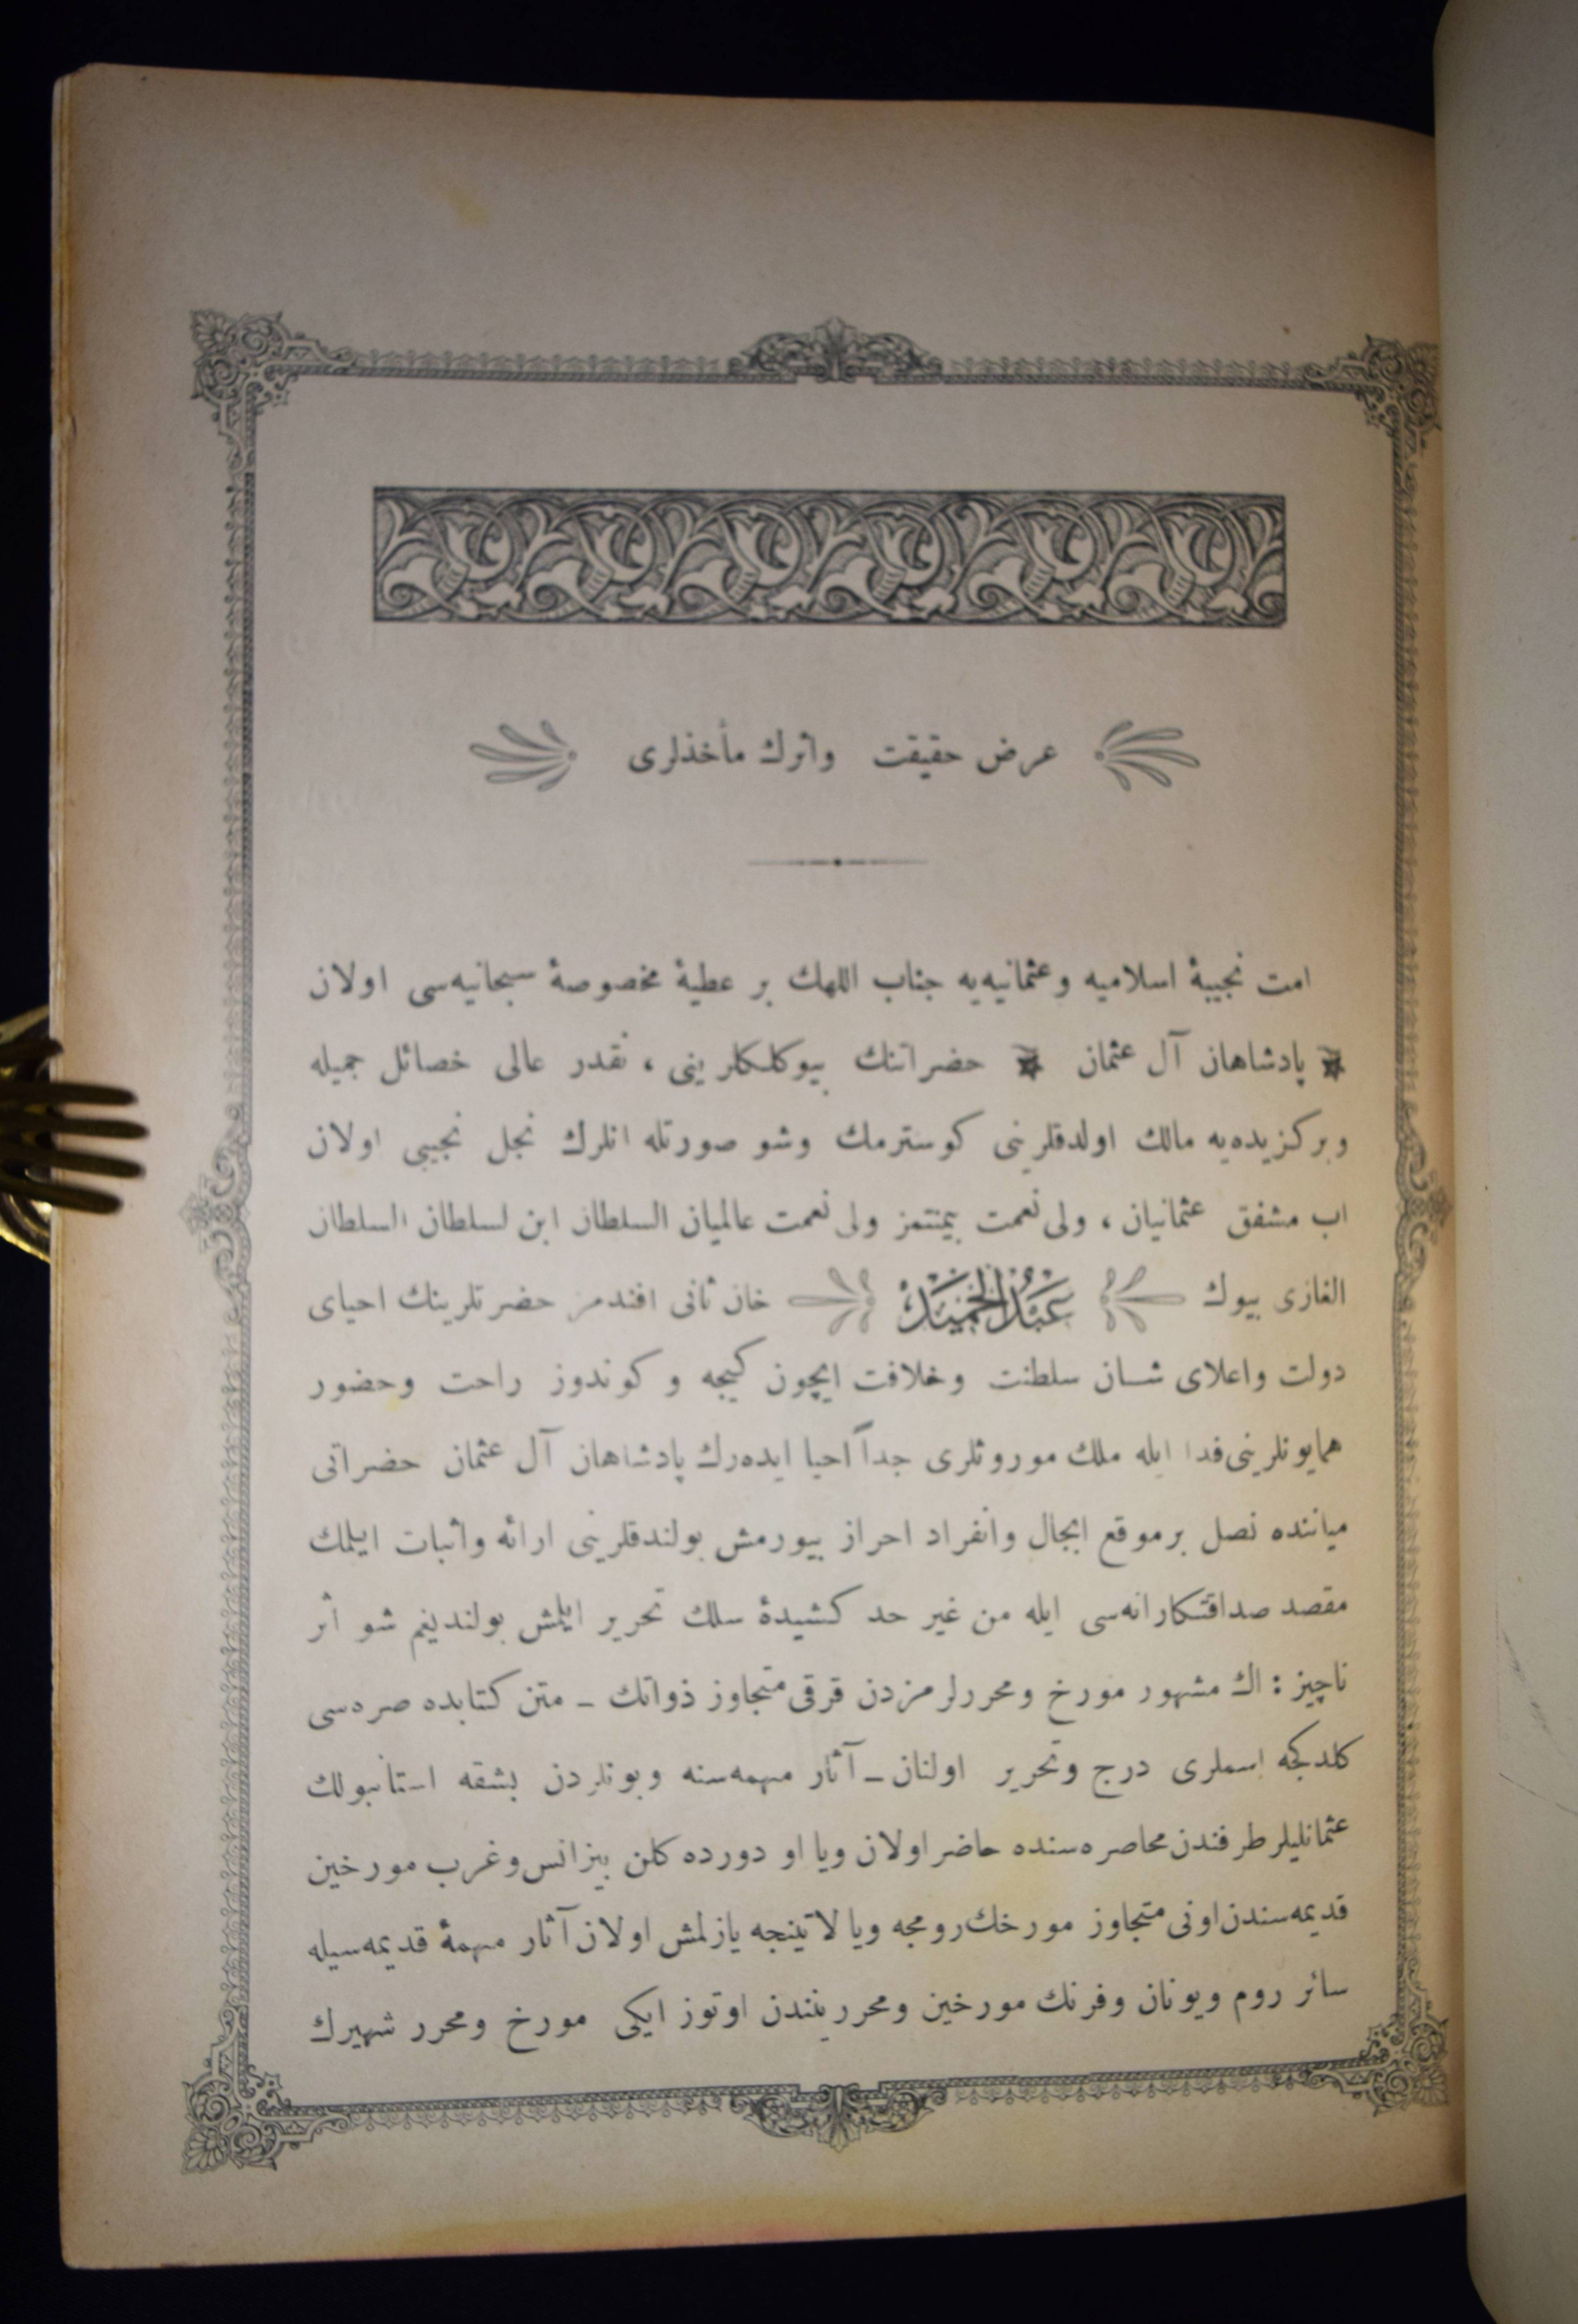 عرض حقیقت واثرك مأخذلری
امت نجیبۀ اسلامیه وعثمانیه‌یه جناب اللهك بر عطیۀ مخصوصۀ سبحانیه‌سی اولان
پادشاهان آل عثمان حضراتنك بیوكلكلرینی ، نقدر عالی خصائل جمیله
وبركزیده‌یه مالك اولدقلرینی كوسترمك وشو صورتله انلرك نجل نجیبی اولان
اب مشفق عثمانیان ، ولی نعمت بیمنتمز ولی نعمت عالمیان السلطان ابن لسلطان السلطان
الغازی بیوك عَبْدُالْحَمِيدْ خان ثانی افندمز حضرتلرینك احیای
دولت واعلای شان سلطنت وخلافت ایچون كیجه و كوندوز راحت وحضور
همایونلرینی فدا ایله ملك موروثلری جداً احیا ایده‌رك پادشاهان آل عثمان حضراتی
میاننده نصل برموقع ابجال وانفراد احراز بیورمش بولندقلرینی ارائه واثبات ایلمك
مقصد صداقتكارانه‌سی ایله من غیر حد كشیدۀ سلك تحریر ایلمش بولندیغم شو اثر
ناچیز : اك مشهور مورخ ومحررلرمزدن قرقی متجاوز ذواتك ـ متن كتابده صره‌سی
كلدكجه اسملری درج وتحریر اولنان ـ آثار مهمه‌سنه وبونلردن بشقه استانبولك
عثمانلیلر طرفندن محاصره‌سنده حاضر اولان ویا او دورده كلن بیزانس وغرب مورخین
قدیمه‌سندن اونی متجاوز مورخك رومجه ویا لاتینجه یازلمش اولان آثار مهمۀ قدیمه‌سیله
سائر روم ویونان وفرنك مورخین ومحررینندن اوتوز ایكی مورخ ومحرر شهیرك